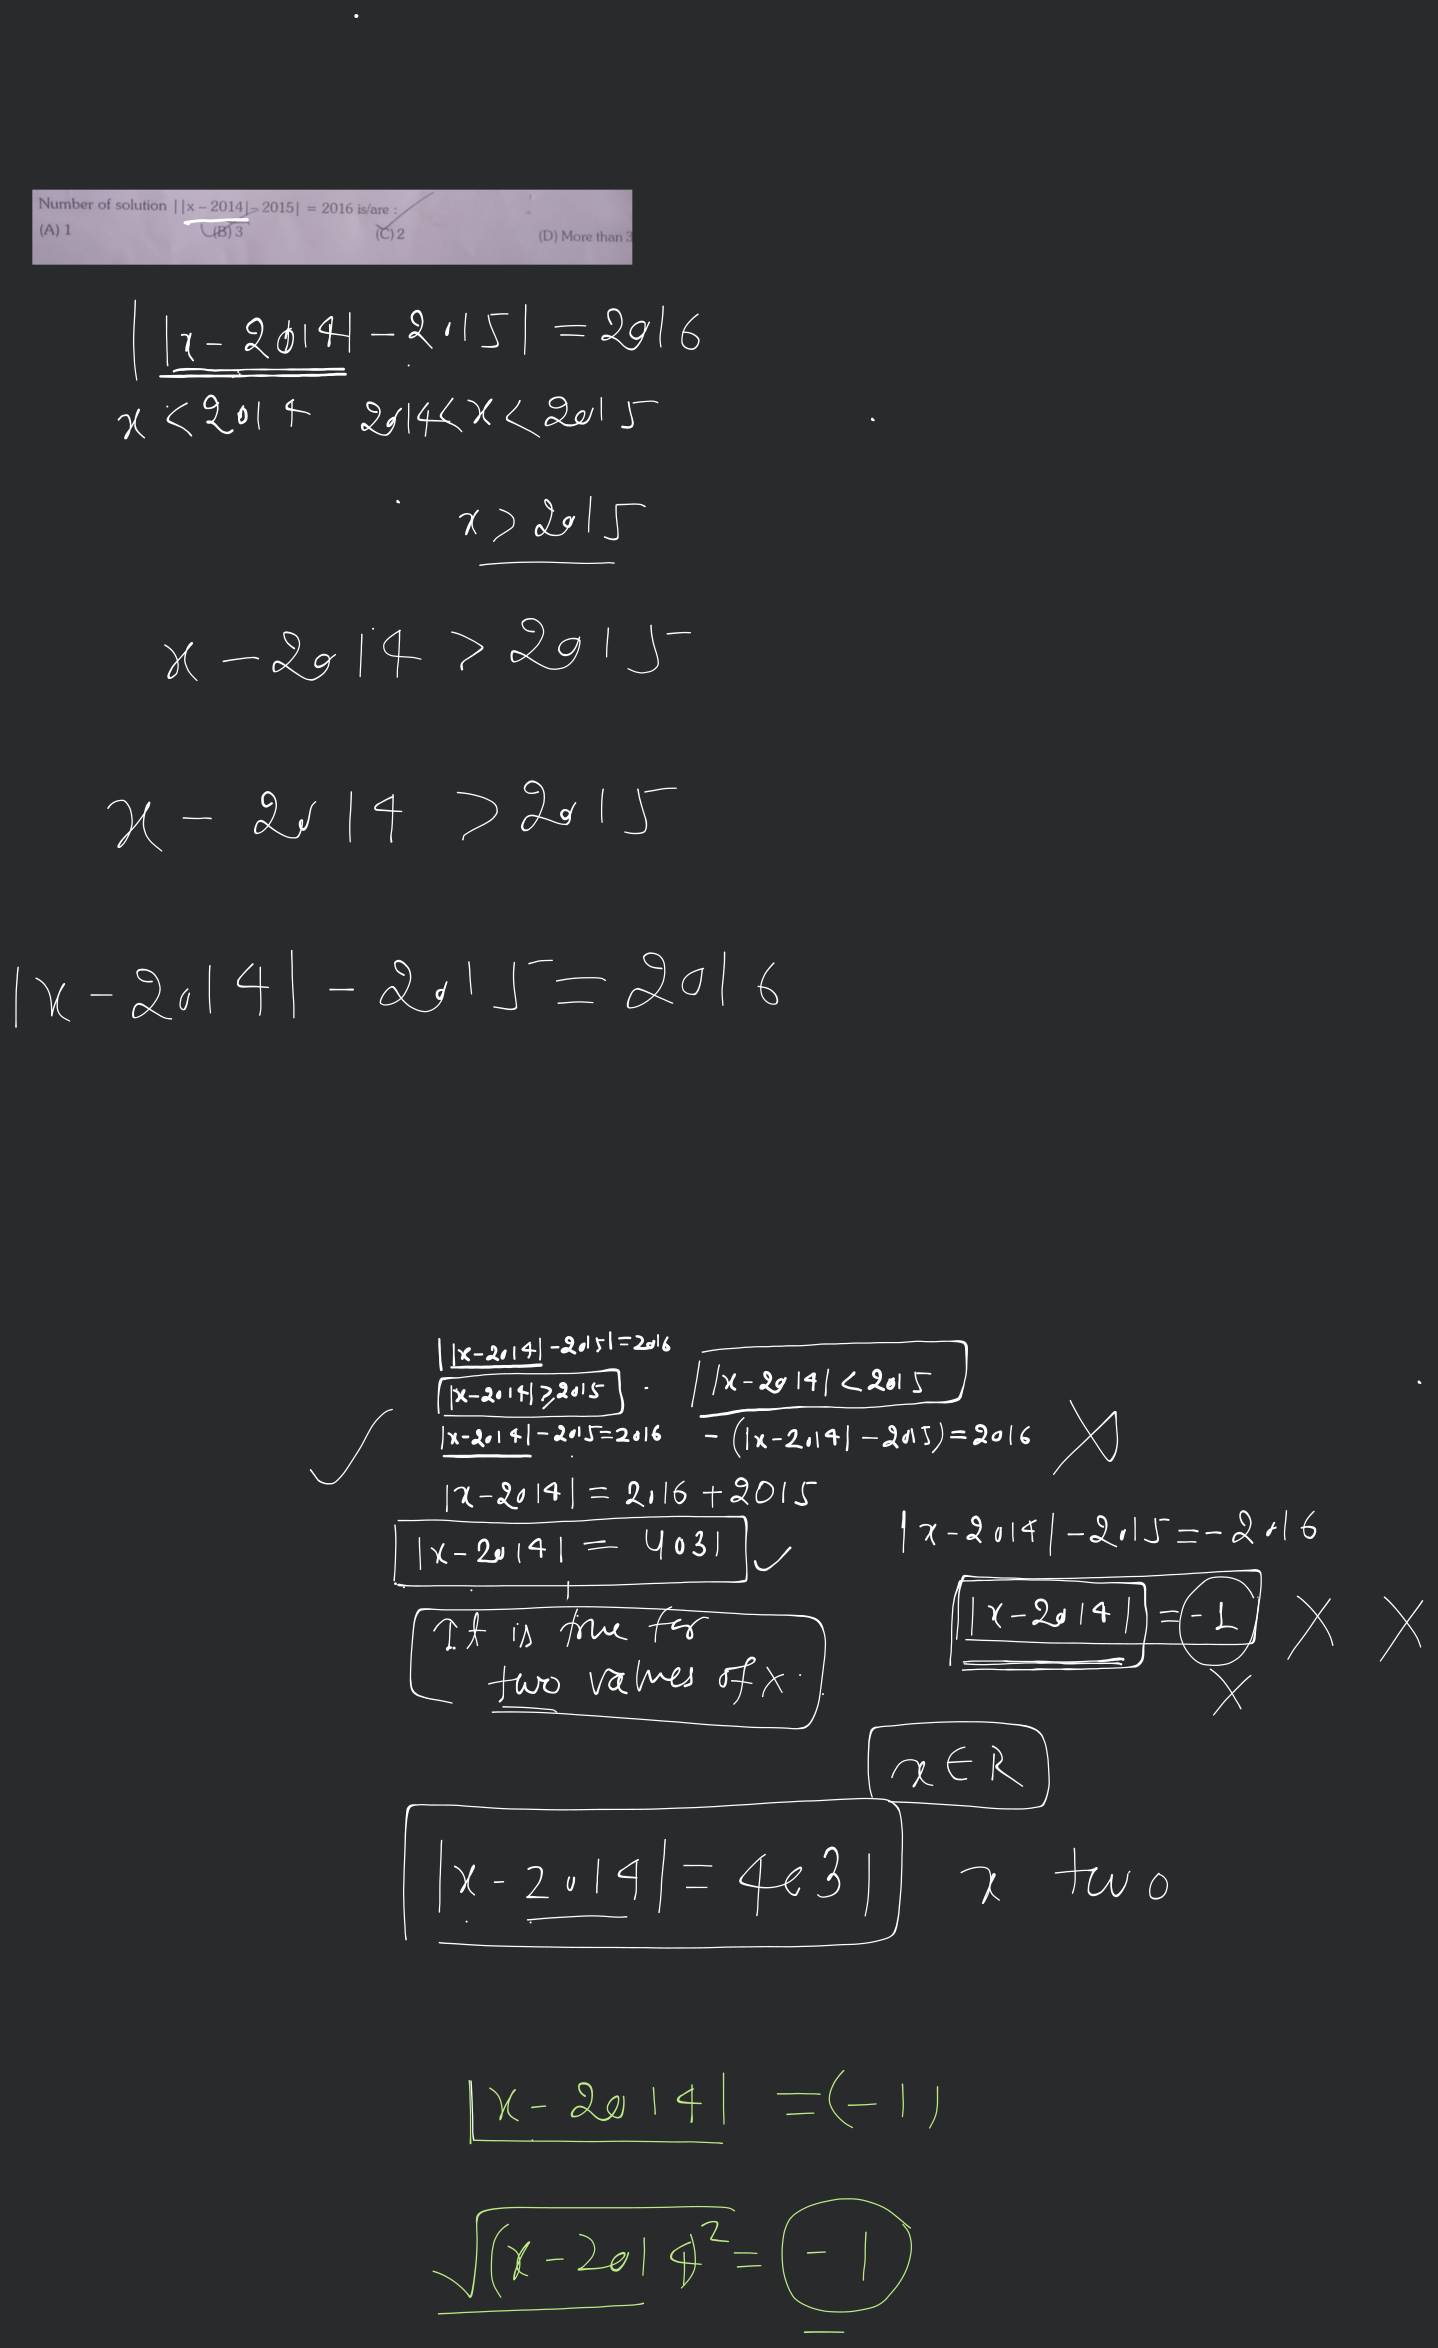 Number of solution ||x – 2014| – 2015| = 2016 is/are :
(A) 1 (B) 3 (C) 2 (D) More than 3
||x - 2014| - 2015| = 2016
x < 2014 2014 < x < 2015
x > 2015
x - 2014 > 2015
x - 2014 > 2015
|x - 2014| - 2015 = 2016
||x-2014| - 2015| = 2016
|x-2014| ≥ 2015 |x-2014| < 2015
|x-2014| - 2015 = 2016 - (|x-2014| - 2015) = 2016
|x-2014| = 2016 + 2015
|x-2014| - 2015 = - 2016
|x-2014| = 4031
|x-2014| = -1
It is true for
two values of x.
x ∈ R
|x - 2014| = 4031 x two
|x - 2014| = (-1)
√(x - 2014)² = -1